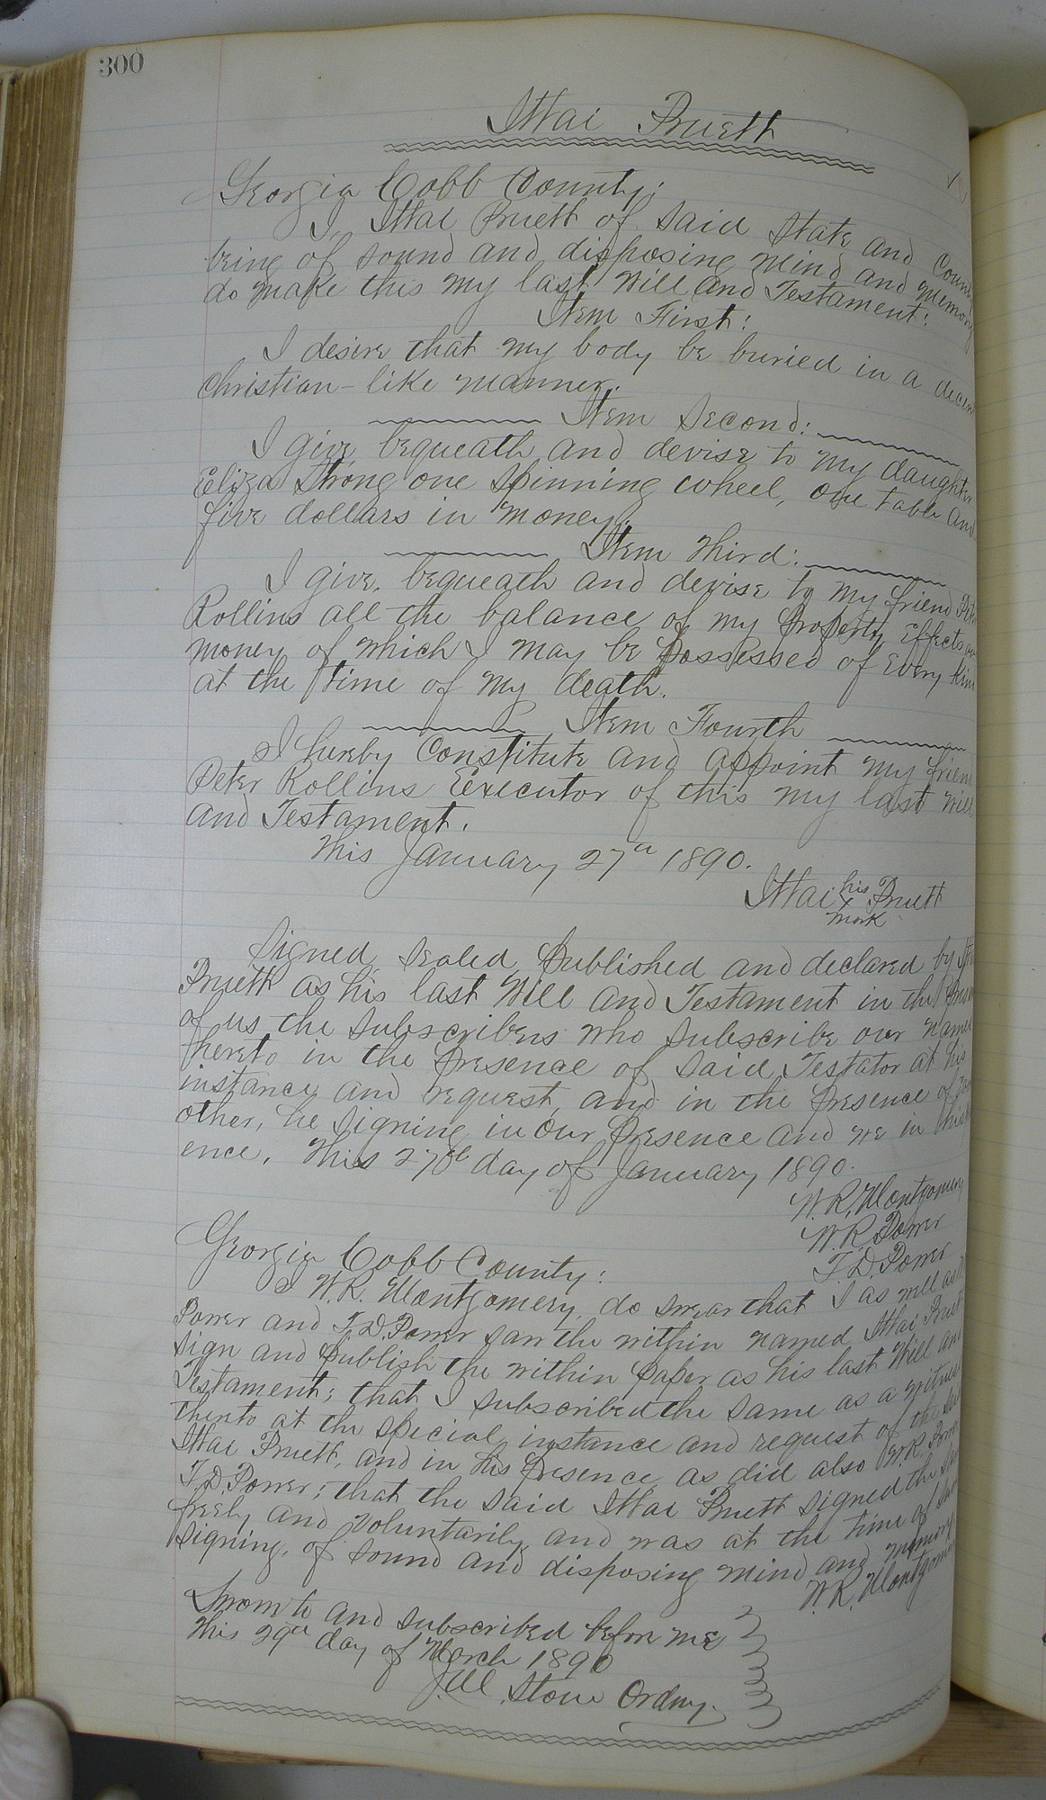 300
Ittai Pruett
Georgia Cobb County:
I, Ittai Pruett of said State and Coun
being of sound and disposing mind and memory
do make this my last Will and Testament:
Item First:
I desire that my body be buried in a decen
Christian-like manner.
Item Second:
I give, bequeath and devise to my daughter
Eliza Strong one spinning wheel, one table and
five dollars in money.
Item Third:
I give, bequeath and devise to my friend
Rollins all the balance of my property, effects
money of which I may be possessed of every kin
at the time of my death.
Item Fourth
I hereby constitute and appoint my frien
Peter Rollins Executor of this my last will
and Testament.
This January 27th 1890.
Ittai his Pruett
x
mark
Signed sealed published and declared by
Pruett as his last Will and Testament in the
of us the subscribers who subscribe our name
hereto in the presence of said Testator at his
instance and request, and in the presence of
other, he signing in our presence and we in
ence. This 27th day of January 1890.
W.R. Montgomery
W.R. Power
T.D. Power
Georgia Cobb County:
I W.R. Montgomery do swear that I as well as
Power and T.D. Power saw the within named Ittai Pruet
sign and publish the within paper as his last Will and
Testament; that I subscribed the same as a witness
thereto at the special instance and request of the
Ittai Pruett, and in his presence as did also W.R. Power
T.D. Power; that the said Ittai Pruett signed the
freely and voluntarily and was at the time of
signing, of sound and disposing mind and memory
W.R. Montgomery
Sworn to and subscribed before me
this 29th day of March 1890
J.M. Stone Ordny.